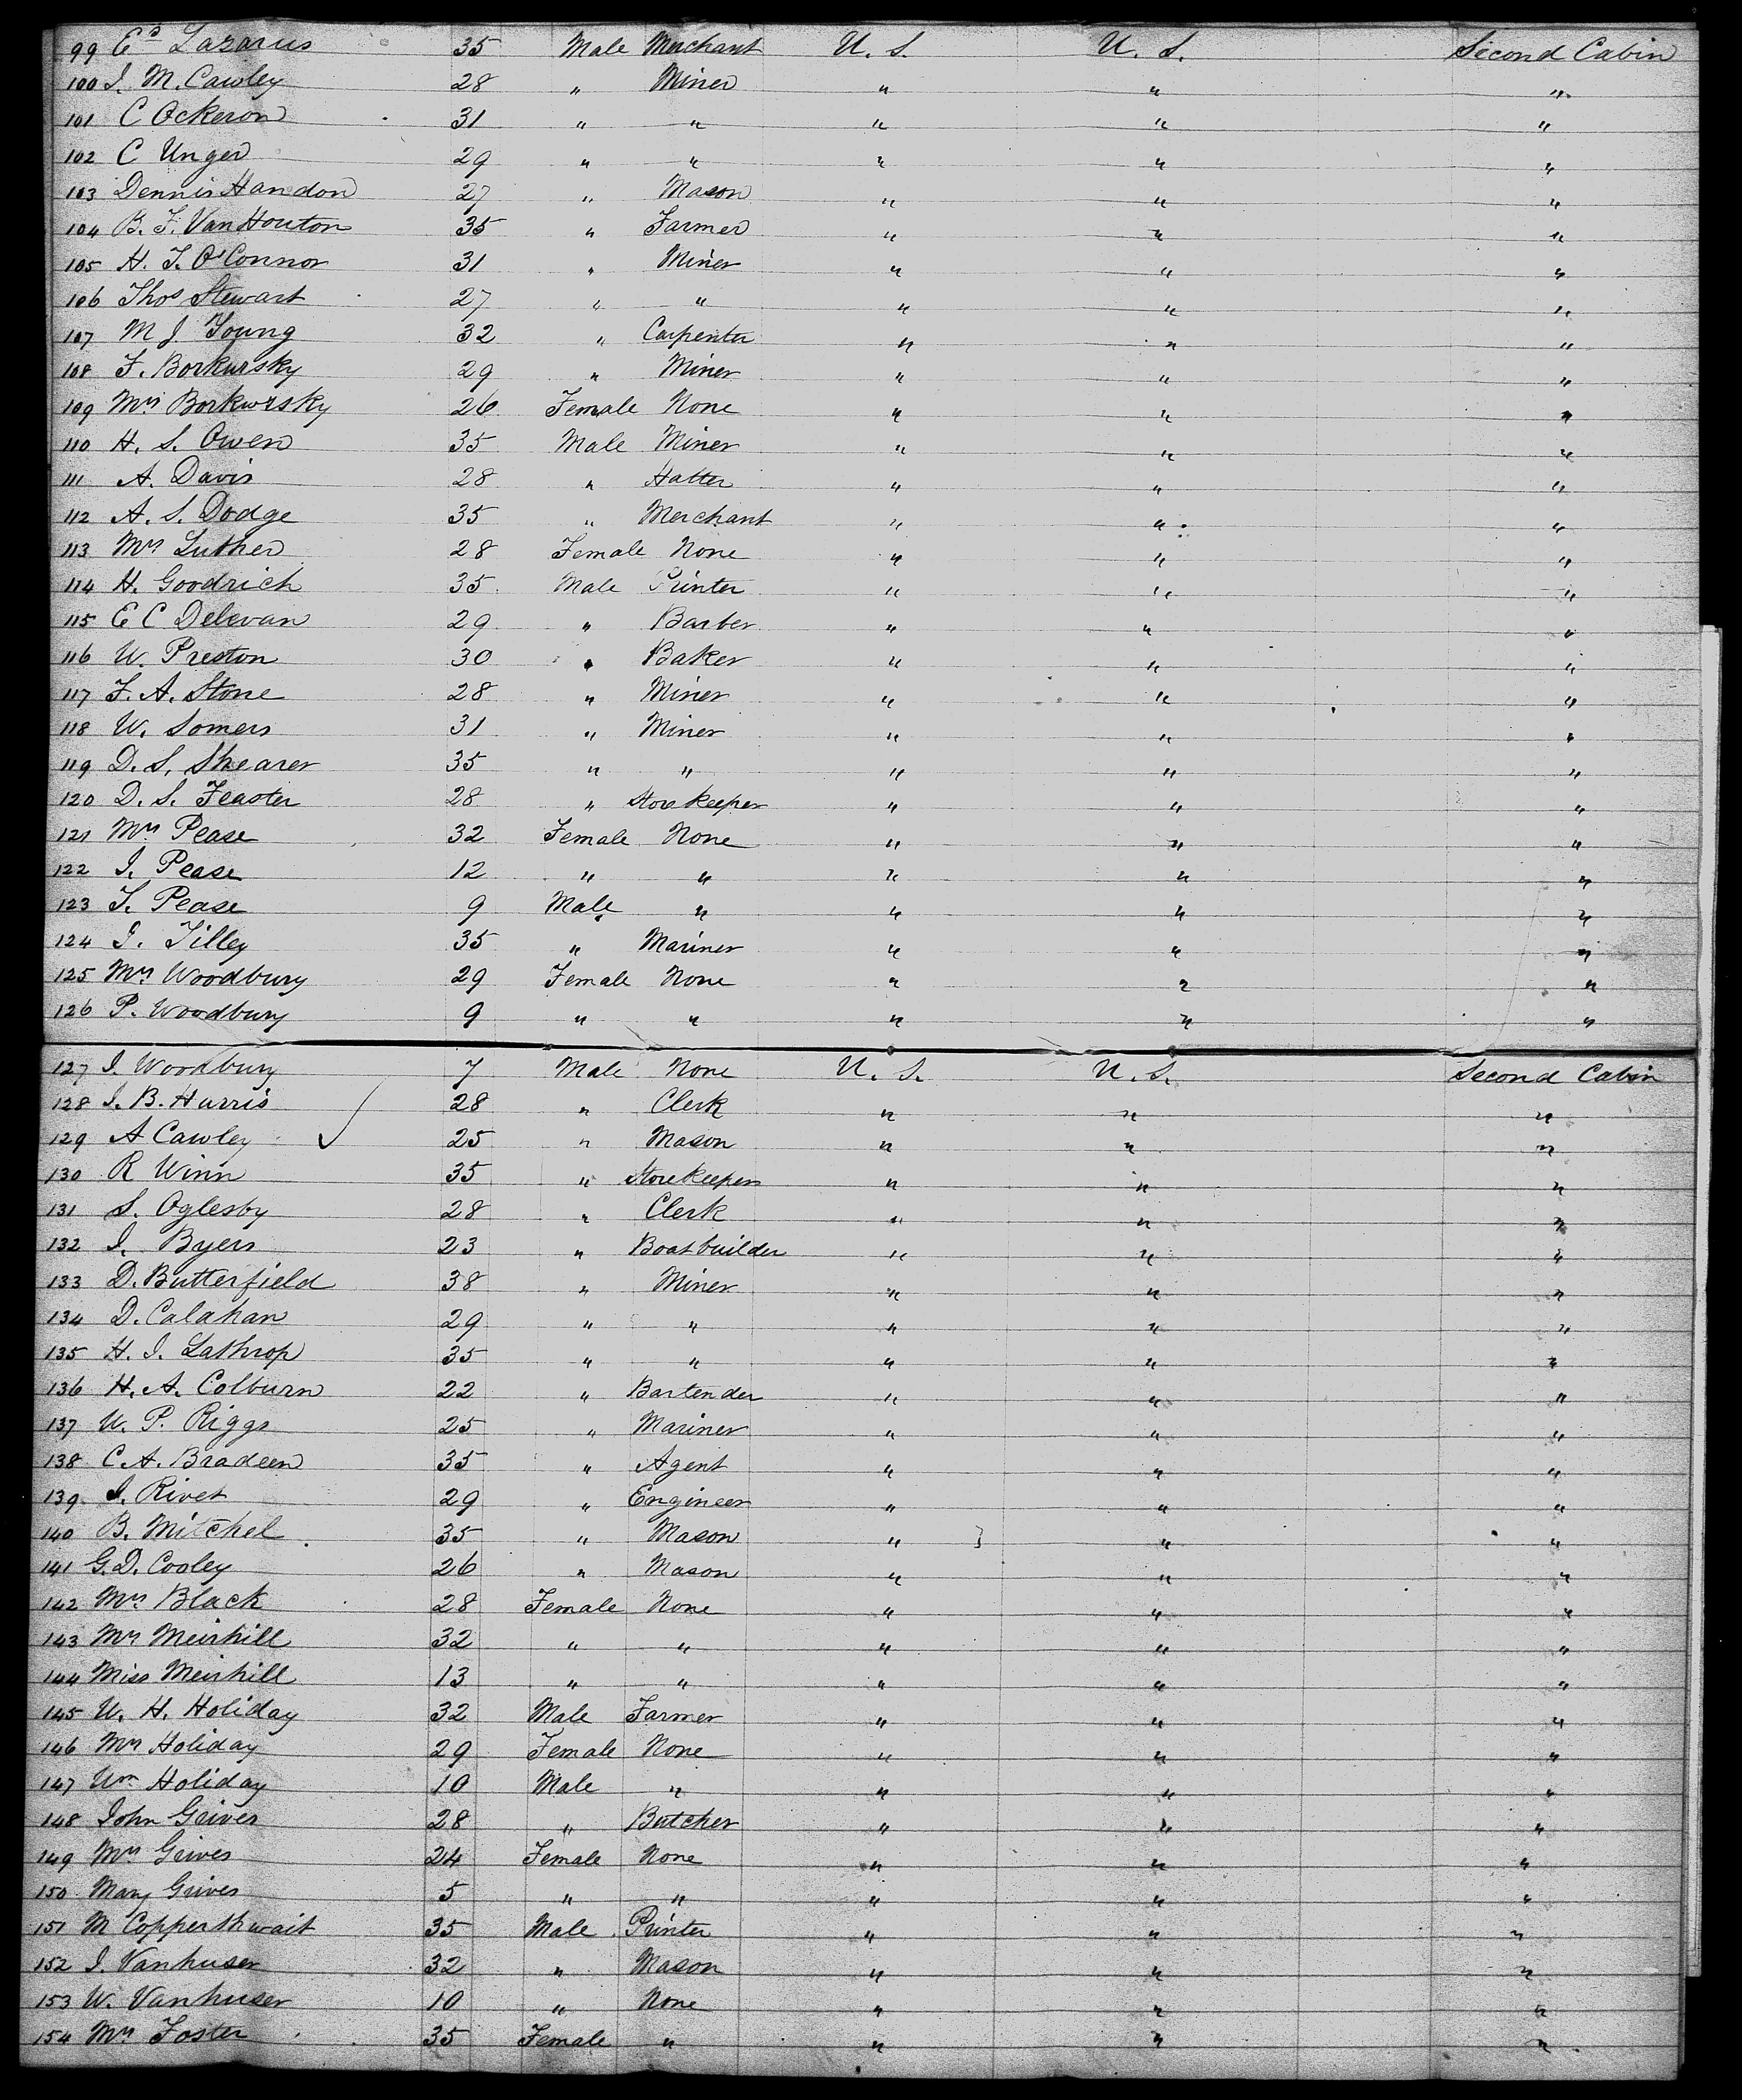 99 Ed Lazarus 35 Male Merchant U. S. U. S. Second Cabin
100 I. M. Cawley 28 " Miner " " "
101 C Ockeron 31 " " " " "
102 C Unger 29 " " " " "
103 Dennis Handon 27 " Mason " " "
104 B. F. VanHouton 35 " Farmer " " "
105 H. T. O'Connor 31 " Miner " " "
106 Thos Stewart 27 " " " " "
107 M J. Young 32 " Carpenter " " "
108 F. Borkursky 29 " Miner " " "
109 Mrs Borkursky 26 Female None " " "
110 H. S. Owen 35 Male Miner " " "
111 A. Davis 28 " Hatter " " "
112 A. S. Dodge 35 " Merchant " " "
113 Mrs Luther 28 Female None " " "
114 H. Goodrich 35 Male Printer " " "
115 E C Delevan 29 " Barber " " "
116 W. Preston 30 " Baker " " "
117 F. A. Stone 28 " Miner " " "
118 W. Somers 31 " Miner " " "
119 D. S. Shearer 35 " " " " "
120 D. S. Feaster 28 " Storekeeper " " "
121 Mrs Pease 32 Female None " " "
122 I. Pease 12 " " " " "
123 T. Pease 9 Male " " " "
124 I. Tilley 35 " Mariner " " "
125 Mrs Woodbury 29 Female None " " "
126 P. Woodbury 9 " " " " "
127 I. Woodbury 7 Male None U. S. U. S. Second Cabin
128 I. B. Harris 28 " Clerk " " "
129 A Cawley 25 " Mason " " "
130 R Winn 35 " Storekeeper " " "
131 S. Oglesby 28 " Clerk " " "
132 I. Byers 23 " Boatbuilder " " "
133 D. Butterfield 38 " Miner " " "
134 D. Calahan 29 " " " " "
135 H. I. Lathrop 35 " " " " "
136 H. A. Colburn 22 " Bartender " " "
137 W. P. Riggs 25 " Mariner " " "
138 C. A. Bradeen 35 " Agent " " "
139 I. Rivet 29 " Engineer " " "
140 B. Mitchel 35 " Mason " " "
141 G. D. Cooley 26 " Mason " " "
142 Mrs Black 28 Female None " " "
143 Mrs Meirhill 32 " " " " "
144 Miss Meirhill 13 " " " " "
145 W. H. Holiday 32 Male Farmer " " "
146 Mrs Holiday 29 Female None " " "
147 Wm Holiday 10 Male " " " "
148 John Grives 28 " Butcher " " "
149 Mrs Grives 24 Female None " " "
150 Mary Grives 5 " " " " "
151 M Copperthwait 35 Male Printer " " "
152 I. Vanhuser 32 " Mason " " "
153 W. Vanhuser 10 " None " " "
154 Mrs Foster 35 Female " " " "